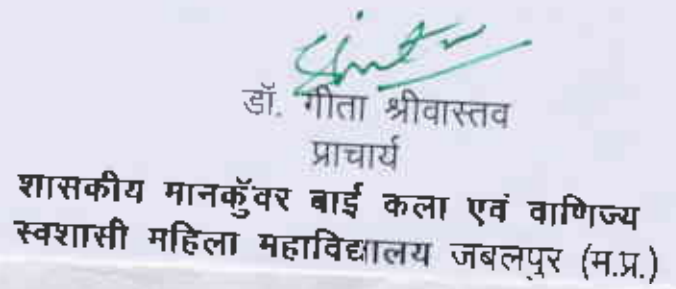 डॉ. गीता श्रीवास्तव
प्राचार्य
शासकीय मानकुँवर बाई कला एवं वाणिज्य
स्वशासी महिला महाविद्यालय जबलपुर (म.प्र.)